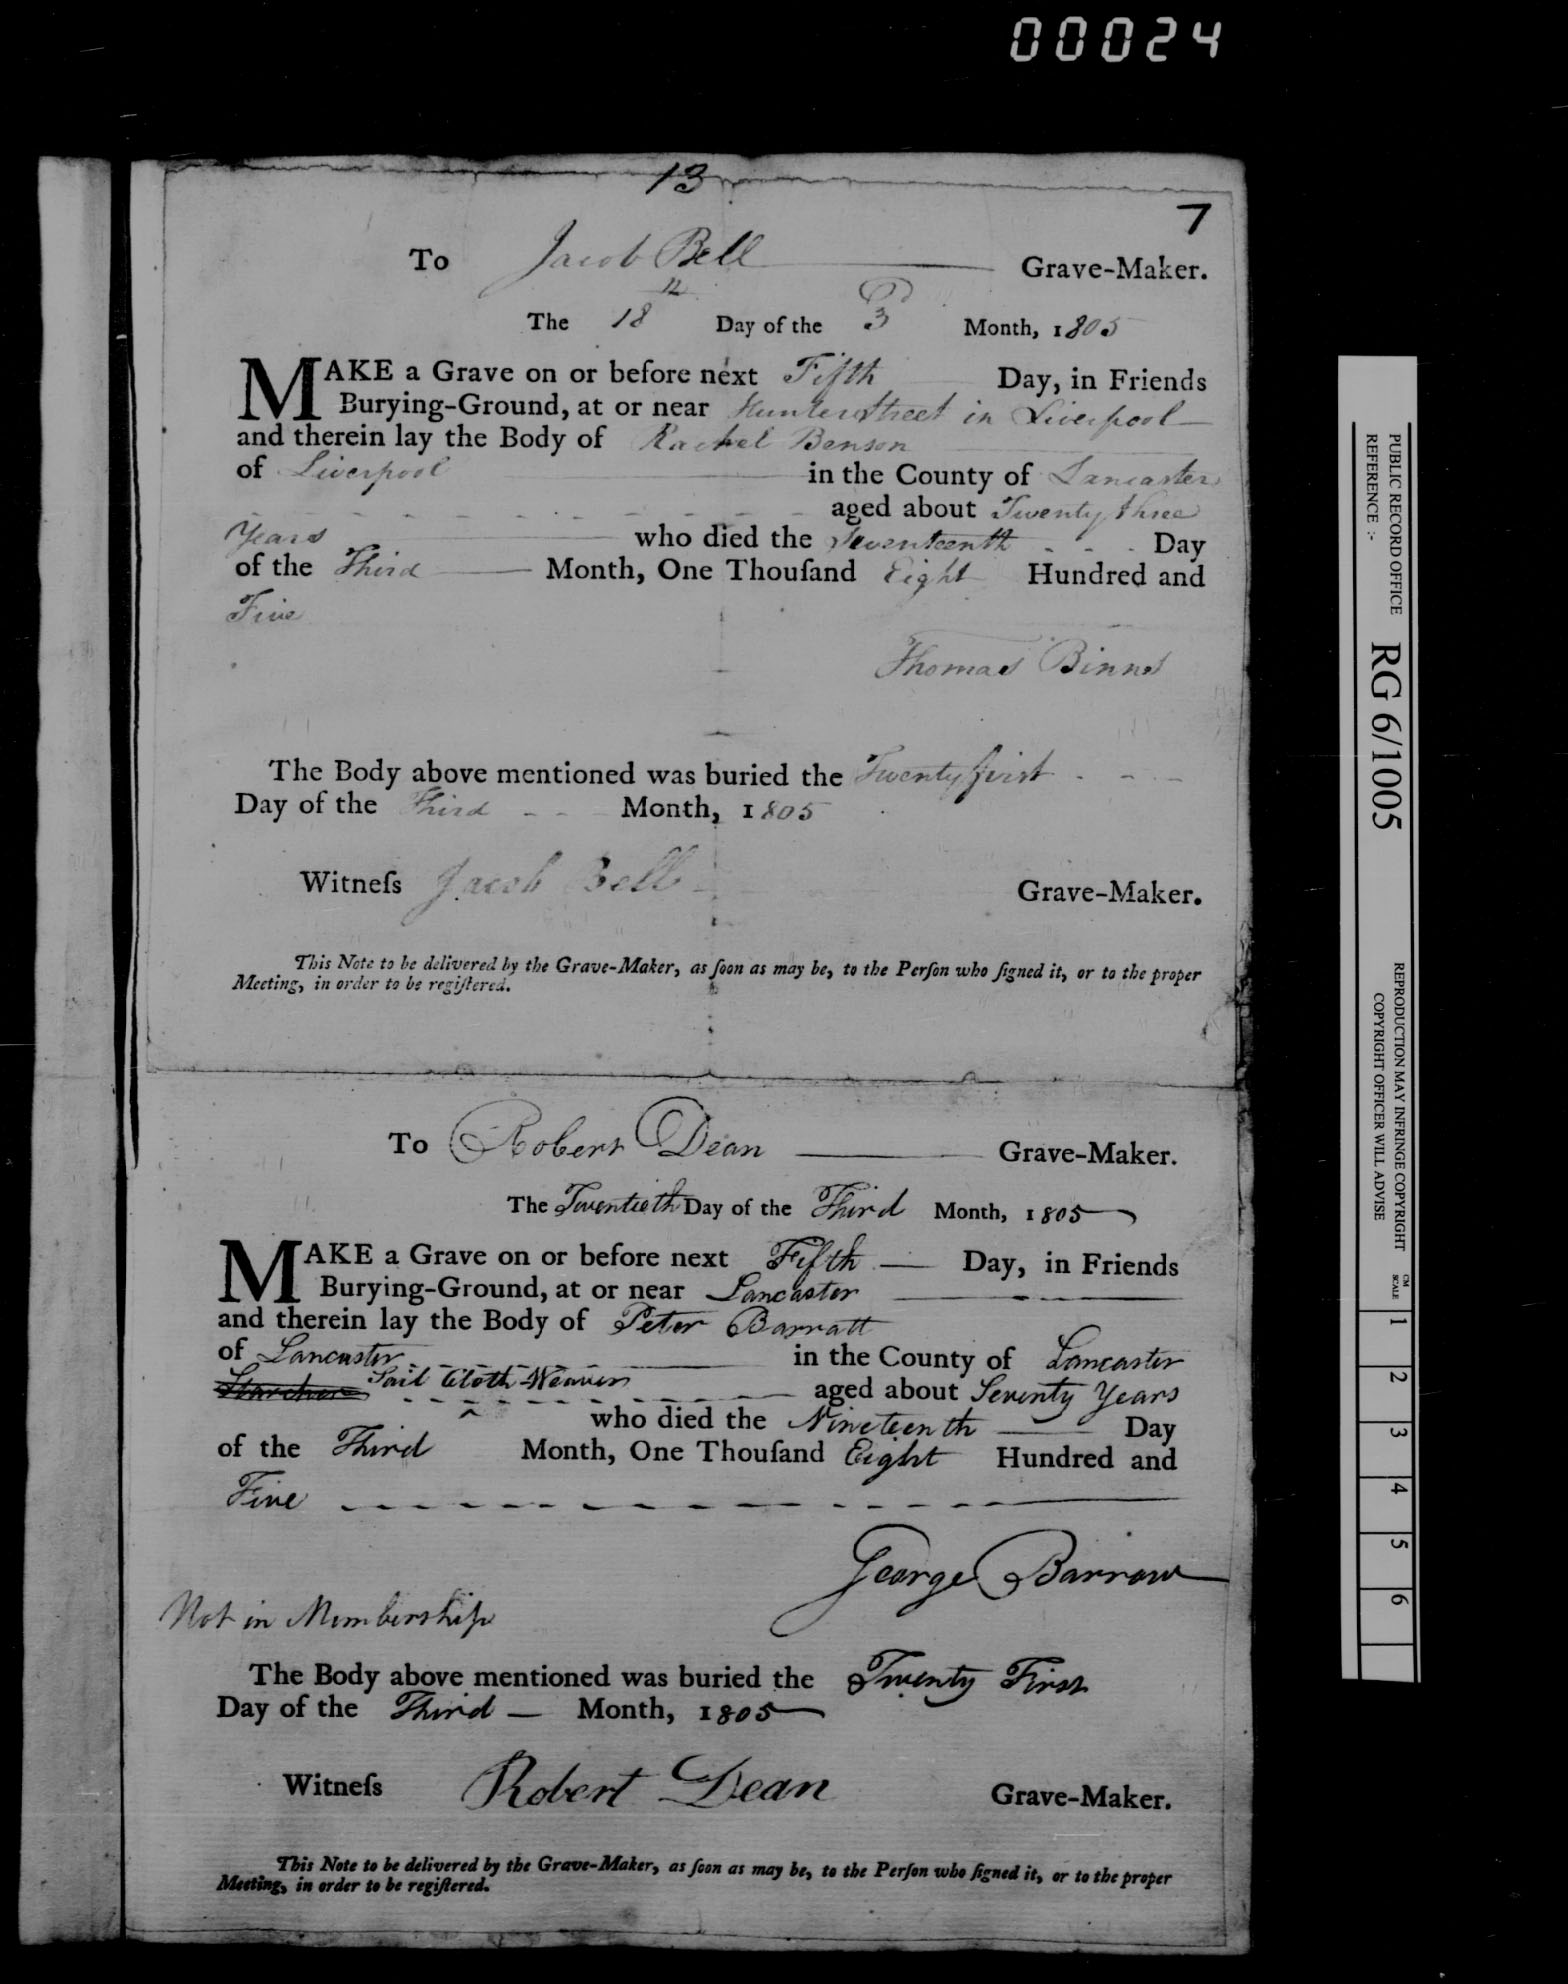 00024
13
7
To Jacob Bell Grave-Maker.
The 18th Day of the 3d Month, 1805
MAKE a Grave on or before next Fifth Day, in Friends
Burying-Ground, at or near Hunter Street in Liverpool
and therein lay the Body of Rachel Benson
of Liverpool in the County of Lancaster
aged about Twenty three
Years who died the Seventeenth Day
of the Third Month, One Thouſand Eight Hundred and
Five
Thomas Binns
The Body above mentioned was buried the Twenty first
Day of the Third Month, 1805
Witneſs Jacob Bell Grave-Maker.
This Note to be delivered by the Grave-Maker, as ſoon as may be, to the Perſon who ſigned it, or to the proper
Meeting, in order to be regiſtered.
To Robert Dean Grave-Maker.
The Twentieth Day of the Third Month, 1805
MAKE a Grave on or before next Fifth Day, in Friends
Burying-Ground, at or near Lancaster
and therein lay the Body of Peter Barratt
of Lancaster in the County of Lancaster
Sail Cloth Weaver aged about Seventy Years
who died the Nineteenth Day
of the Third Month, One Thouſand Eight Hundred and
Five
George Barrow
Not in Membership
The Body above mentioned was buried the Twenty First
Day of the Third Month, 1805
Witneſs Robert Dean Grave-Maker.
This Note to be delivered by the Grave-Maker, as ſoon as may be, to the Perſon who ſigned it, or to the proper
Meeting, in order to be regiſtered.
PUBLIC RECORD OFFICE
REFERENCE :-
RG 6/1005
REPRODUCTION MAY INFRINGE COPYRIGHT
COPYRIGHT OFFICER WILL ADVISE
CM
SCALE
1 2 3 4 5 6